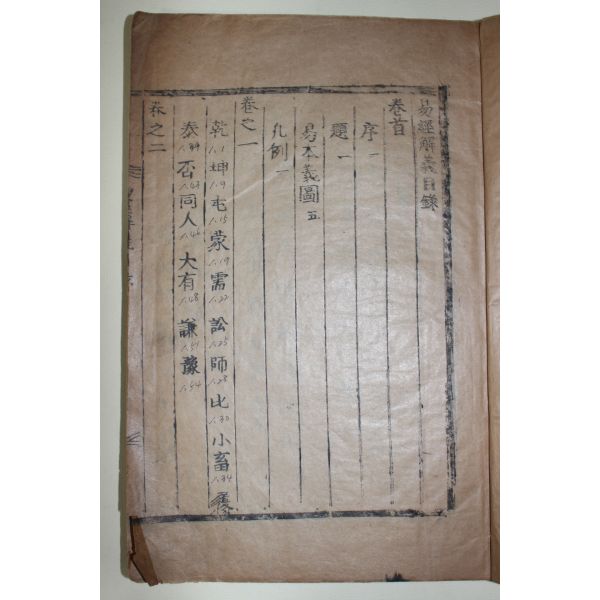 易經解義目錄
卷首
序 一
題 一
易本義圖 五
凡例 一
卷之一
乾 1.1 坤 1.9 屯 1.15 蒙 1.19 需 1.22 訟 1.25 師 1.28 比 1.30 小畜 1.34 履
泰 否 1.43 同人 1.46 大有 1.48 謙 1.51 豫 1.54
卷之二